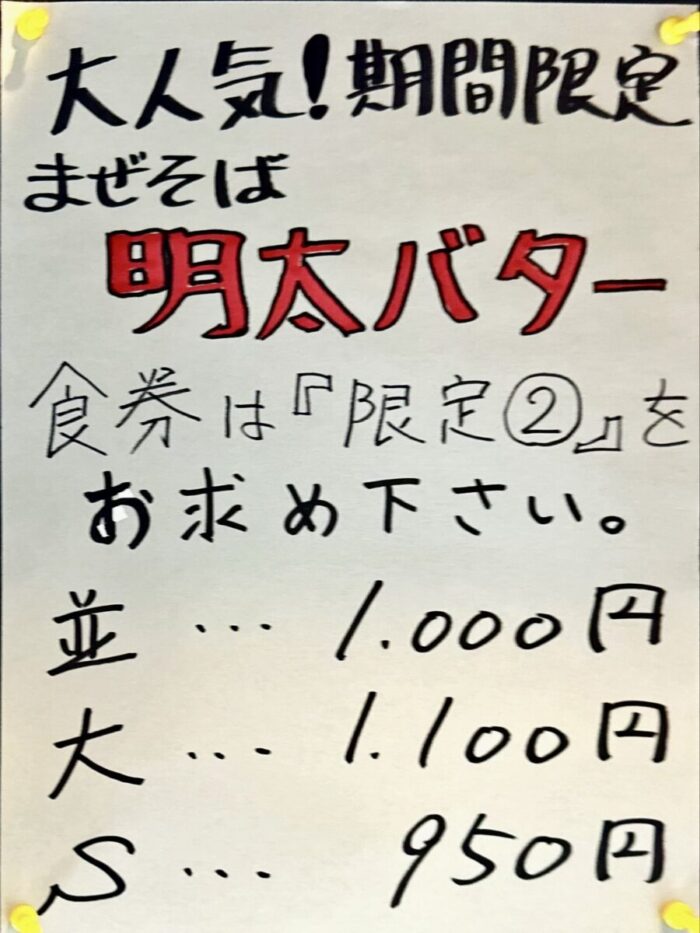 大人気!期間限定
まぜそば
明太バター
食券は『限定②』を
お求め下さい。
並…1.000円
大…1.100円
S…950円